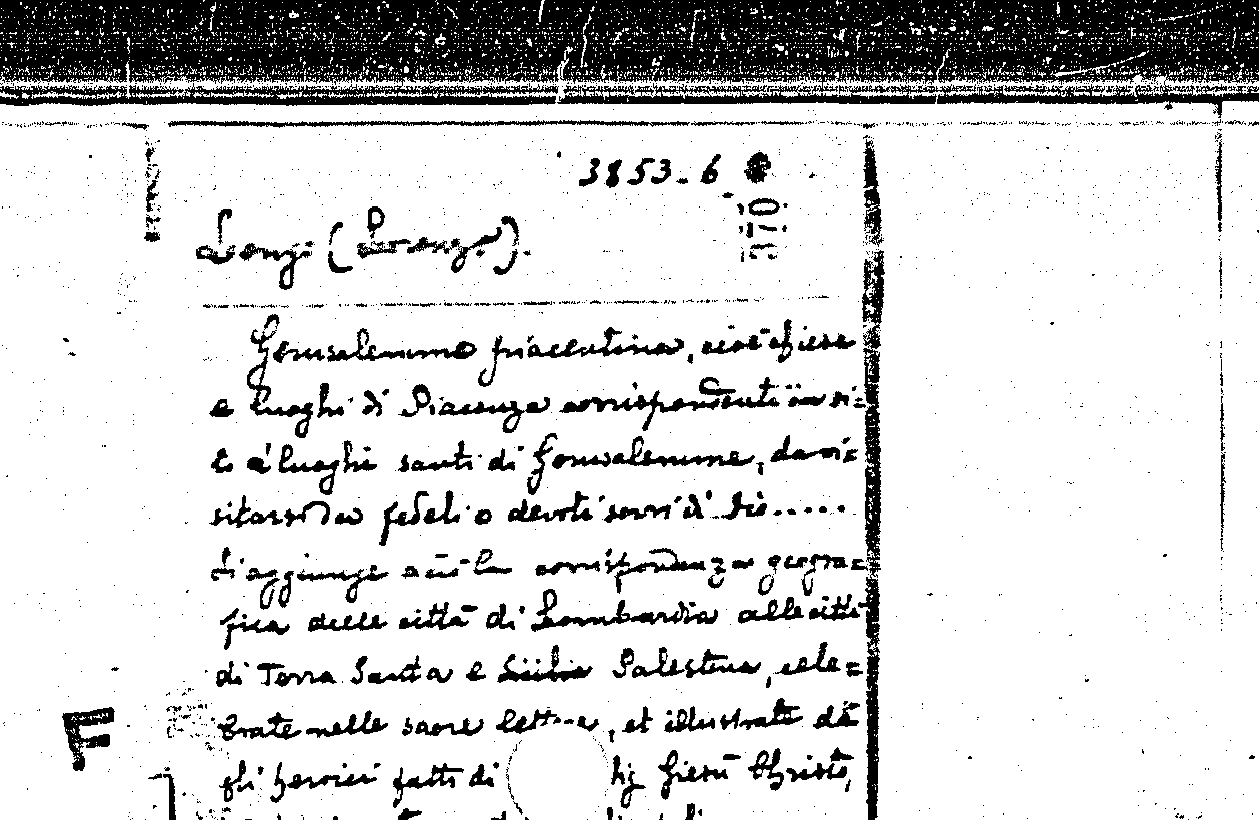 3853-6
370
Longi (Lorenzo).
Gerusalemme piacentina, cioè chiese
e luoghi di Piacenza corrispondenti in si=
to a' luoghi santi di Gerusalemme, da vi=
sitarsi da fedeli e devoti servi di Dio.....
Si aggiunge la corrispondenza geogra=
fica delle città di Lombardia alle città
di Terra Santa e Palestina, cele=
brate nelle sacre lettere, et illustrate da
gli heroici fatti di Giesù Christo,
F